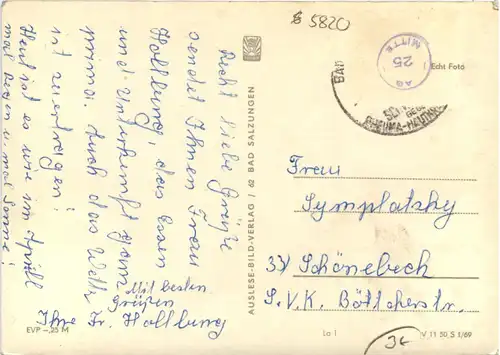 § 5820
Recht liebe Grüße
sendet Ihnen Frau
Hollburg, das Essen
und Unterkunft ganz
prima. Auch das Wetter
ist zu ertragen!
Heut ist es wie im April
mal Regen u. mal Sonne!
Mit besten
Grüßen
Ihre Fr. Hollburg
EVP –,25 M
AUSLESE-BILD-VERLAG / 62 BAD SALZUNGEN
Echt Foto
BAD
RHEUMA-
25
MITT
Frau
Symplatzky
33 Schönebeck
S.V.K. Böttcherstr.
Lo 1
V 11 50 S 1/69